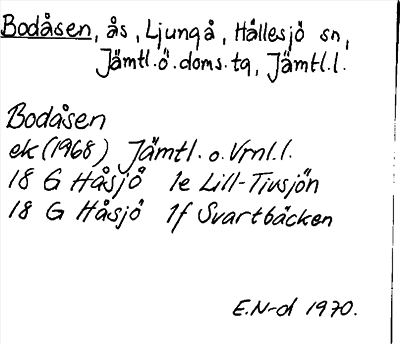 Bodåsen, ås, Ljungå, Hållesjö sn,
Jämtl.ö.doms.tg, Jämtl.l.
Bodåsen
ek (1968) Jämtl. o. Vrnl.l.
18 G Håsjö 1e Lill-Tivsjön
18 G Håsjö 1f Svartbäcken
E.N-d 1970.